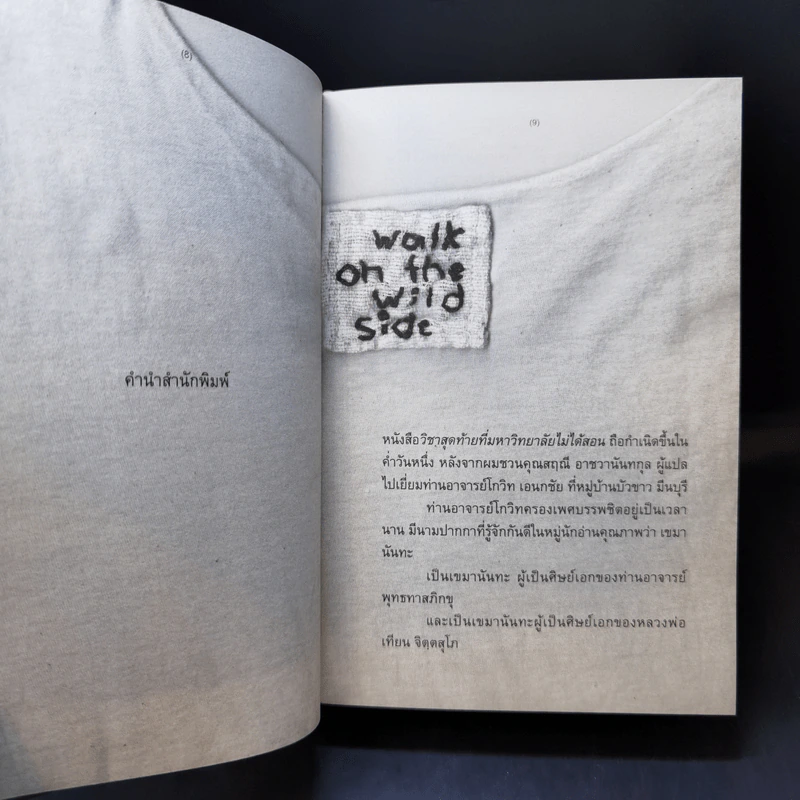 (8)
คำนำสำนักพิมพ์
(9)
walk
on the
wild
side
หนังสือวิชาสุดท้ายที่มหาวิทยาลัยไม่ได้สอน ถือกำเนิดขึ้นใน
ค่ำวันหนึ่ง หลังจากผมชวนคุณสฤณี อาชวานันทกุล ผู้แปล
ไปเยี่ยมท่านอาจารย์โกวิท เอนกชัย ที่หมู่บ้านบัวขาว มีนบุรี
ท่านอาจารย์โกวิทครองเพศบรรพชิตอยู่เป็นเวลา
นาน มีนามปากกาที่รู้จักกันดีในหมู่นักอ่านคุณภาพว่า เขมา
นันทะ
เป็นเขมานันทะ ผู้เป็นศิษย์เอกของท่านอาจารย์
พุทธทาสภิกขุ
และเป็นเขมานันทะผู้เป็นศิษย์เอกของหลวงพ่อ
เทียน จิตฺตสุโภ